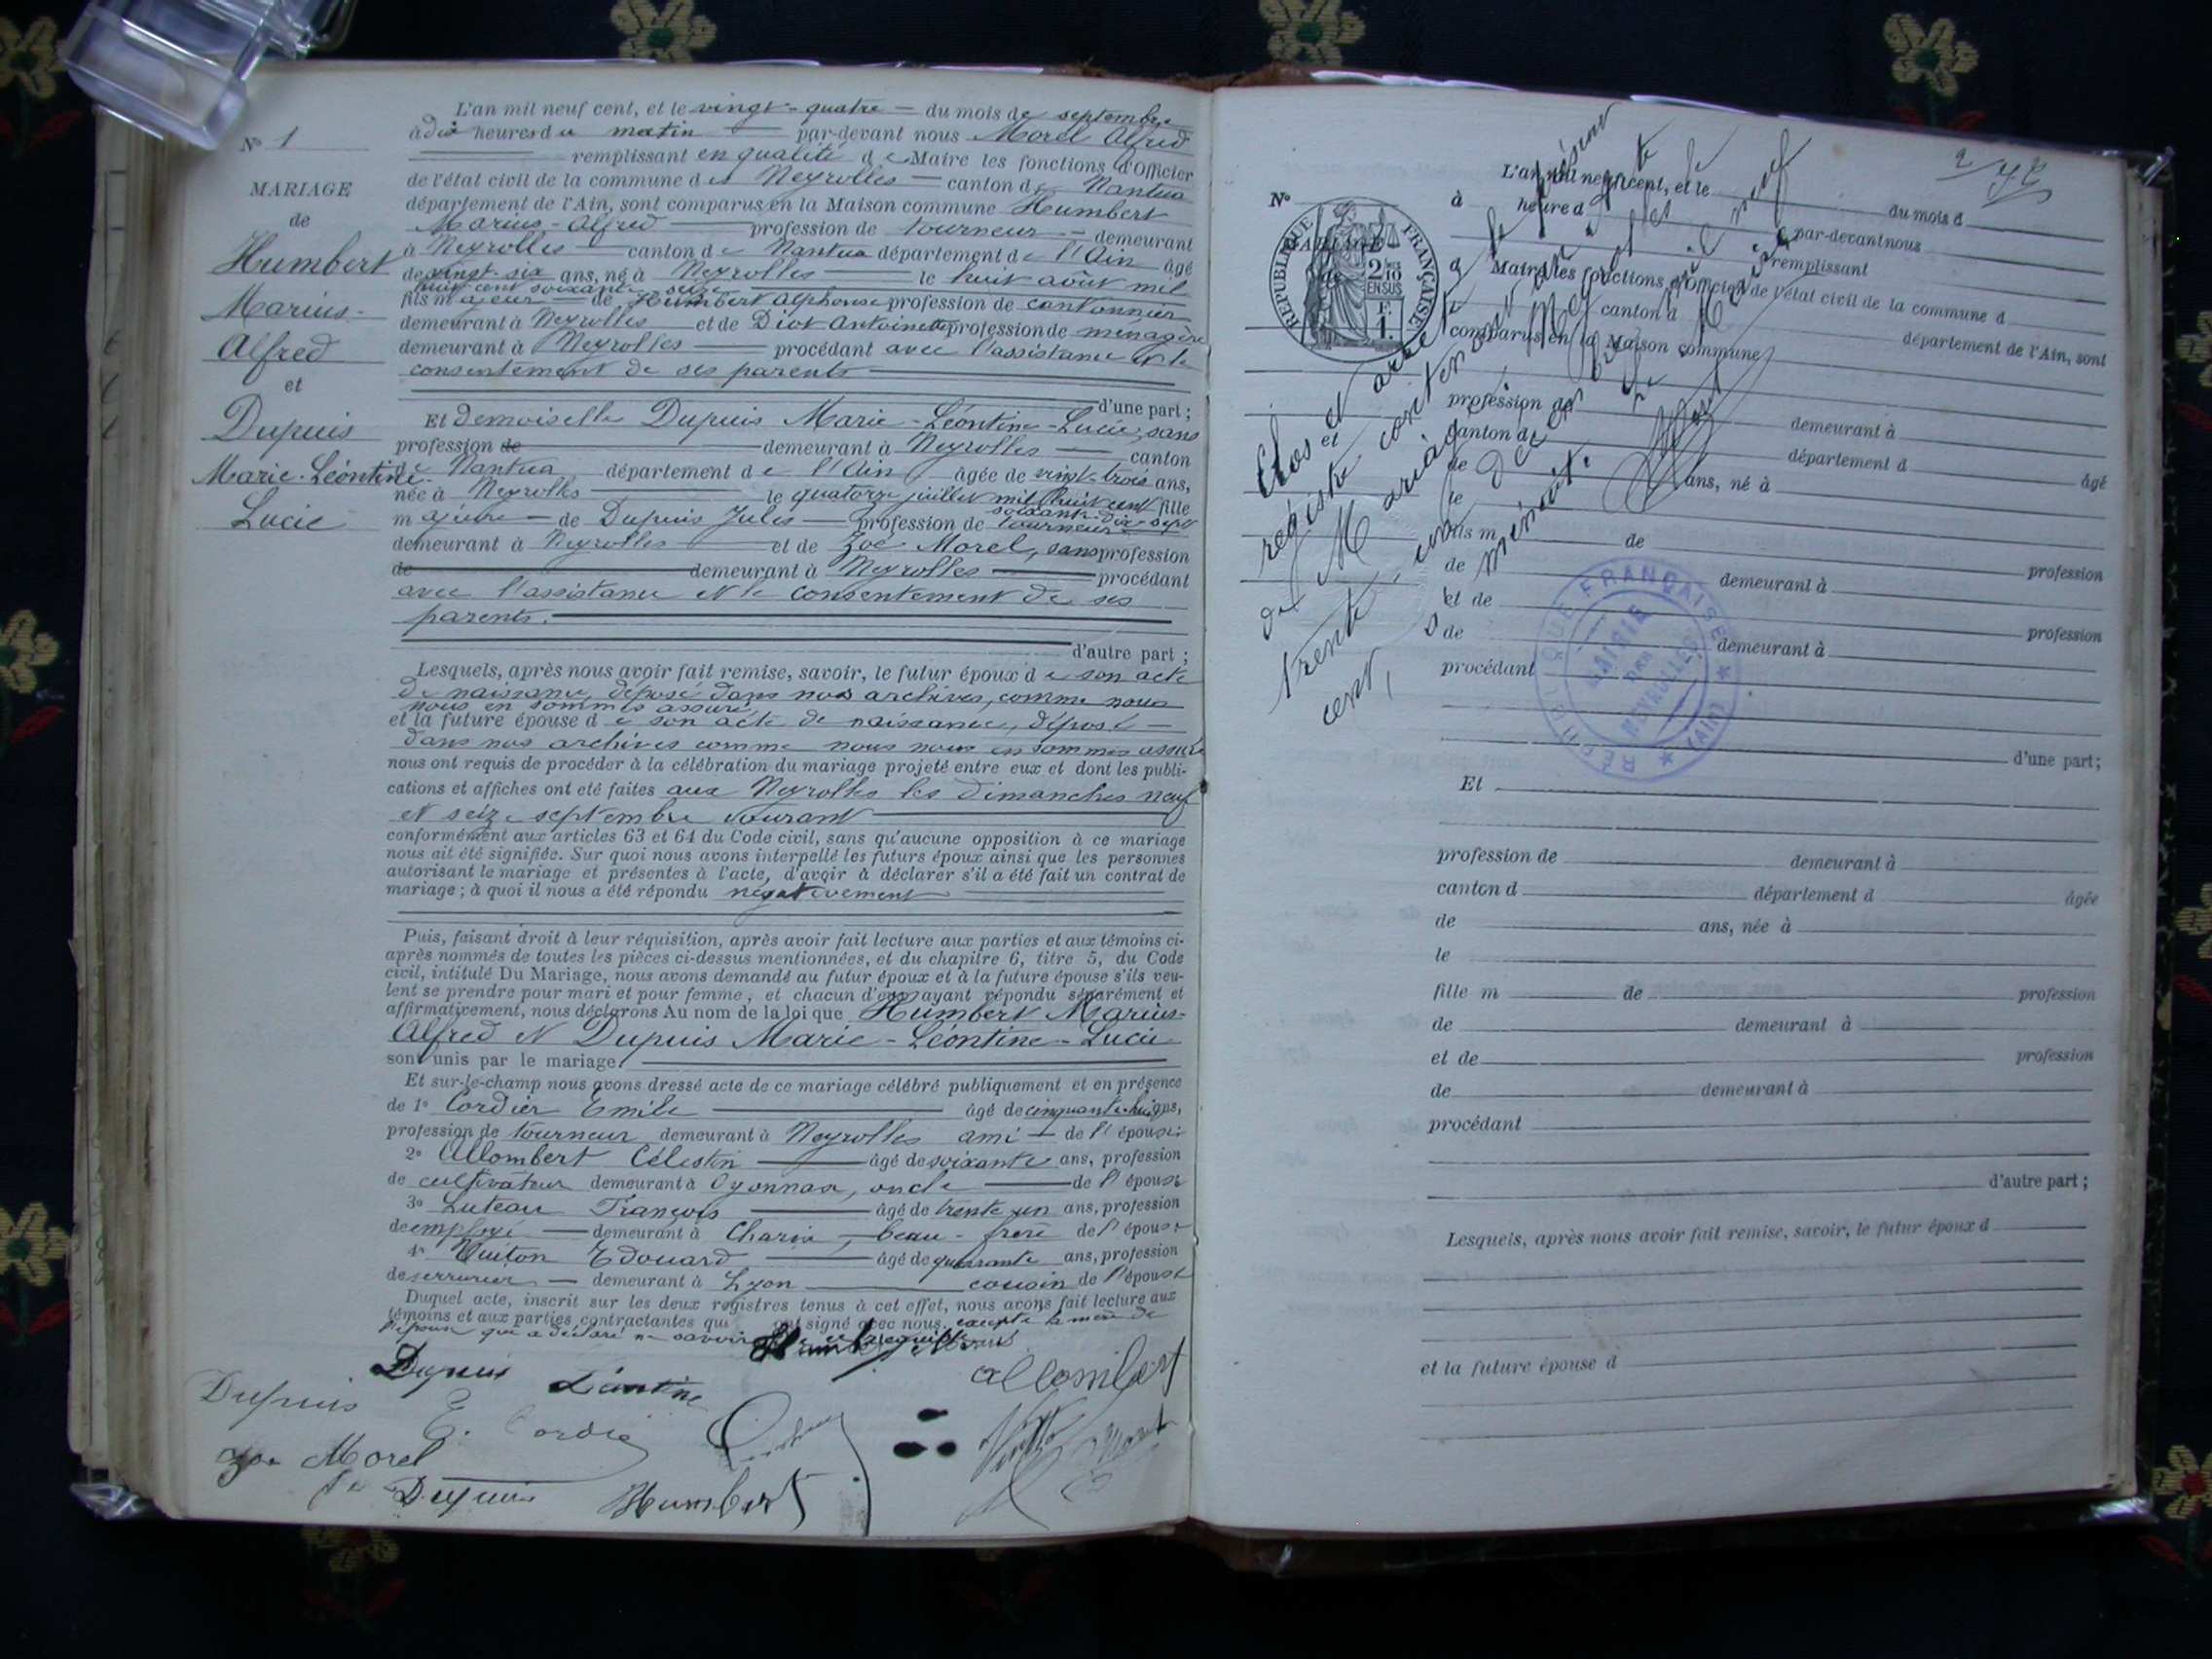 L'an mil neuf cent, et le vingt-quatre du mois de septembre
à dix heures du matin par-devant nous Morel Alfred
remplissant en qualité de Maire les fonctions d'Officier
de l'état civil de la commune des Neyrolles canton de Nantua
département de l'Ain, sont comparus en la Maison commune Humbert
Marius-Alfred profession de tourneur demeurant
à Neyrolles canton de Nantua département de l'Ain âgé
de vingt-six ans, né à Neyrolles le huit août mil
huit cent soixante seize
fils majeur de Humbert Alphonse profession de cantonnier
demeurant à Neyrolles et de Diot Antoinette profession de ménagère
demeurant à Neyrolles procédant avec l'assistance et le
consentement de ses parents
d'une part ;
Nº 1
MARIAGE
de
Humbert
Marius-
Alfred
et
Dupuis
Marie-Léontine
Lucie
Et demoiselle Dupuis Marie-Léontine-Lucie, sans
profession de demeurant à Neyrolles canton
de Nantua département de l'Ain âgée de vingt-trois ans,
née à Neyrolles le quatorze juillet mil huit cent fille
soixante-dix-sept
majeure de Dupuis Jules profession de tourneur
demeurant à Neyrolles et de Zoé Morel, sans profession
de demeurant à Neyrolles procédant
avec l'assistance et le consentement de ses
parents.
d'autre part ;
Lesquels, après nous avoir fait remise, savoir, le futur époux de son acte
de naissance, déposé dans nos archives, comme nous
nous en sommes assuré,
et la future épouse de son acte de naissance, déposé
dans nos archives comme nous nous en sommes assuré
nous ont requis de procéder à la célébration du mariage projeté entre eux et dont les publi-
cations et affiches ont été faites aux Neyrolles les dimanches neuf
et seize septembre courant
conformément aux articles 63 et 64 du Code civil, sans qu'aucune opposition à ce mariage
nous ait été signifiée. Sur quoi nous avons interpellé les futurs époux ainsi que les personnes
autorisant le mariage et présentes à l'acte, d'avoir à déclarer s'il a été fait un contrat de
mariage ; à quoi il nous a été répondu négativement
Puis, faisant droit à leur réquisition, après avoir fait lecture aux parties et aux témoins ci-
après nommés de toutes les pièces ci-dessus mentionnées, et du chapitre 6, titre 5, du Code
civil, intitulé Du Mariage, nous avons demandé au futur époux et à la future épouse s'ils veu-
lent se prendre pour mari et pour femme, et chacun d'eux ayant répondu séparément et
affirmativement, nous déclarons Au nom de la loi que Humbert Marius-
Alfred et Dupuis Marie-Léontine-Lucie
sont unis par le mariage.
Et sur-le-champ nous avons dressé acte de ce mariage célébré publiquement et en présence
de 1º Cordier Emile âgé de cinquante-huit ans,
profession de tourneur demeurant à Neyrolles ami de l'épouse
2º Allombert Célestin âgé de soixante ans, profession
de cultivateur demeurant à Oyonnax, oncle de l'épouse
3º Luteau François âgé de trente un ans, profession
de employé demeurant à Charix, beau-frère de l'épouse
4º Vuiton Edouard âgé de quarante ans, profession
de serrurier demeurant à Lyon cousin de l'épouse
Duquel acte, inscrit sur les deux registres tenus à cet effet, nous avons fait lecture aux
témoins et aux parties contractantes qui ont signé avec nous. excepté la mère de
l'époux qui a déclaré ne savoir
Humbert Marius
Dupuis Léontine
Allombert
Dupuis
E. Cordier
Zoé Morel
fe Dupuis
Humbert
Morel
2
Nº
MARIAGE
de
et
RÉPUBLIQUE FRANÇAISE
2/10
EN SUS
F.
1.
Clos et arrêté le présent
registre contenant un acte
de Mariage, aux Neyrolles le
trente un décembre mil neuf
cent, à minuit. Le Maire
Morel
L'an mil neuf cent, et le du mois d
à heure d par-devant nous
remplissant
Maire les fonctions d'Officier de l'état civil de la commune d
canton d département de l'Ain, sont
comparus en la Maison commune
profession de demeurant à
canton d département d âgé
de ans, né à
le
fils m de profession
de demeurant à
et de profession
de demeurant à
procédant
RÉPUBLIQUE FRANÇAISE
MAIRIE
DES
NEYROLLES
(AIN)
d'une part ;
Et
profession de demeurant à
canton d département d âgée
de ans, née à
le
fille m de profession
de demeurant à
et de profession
de demeurant à
procédant
d'autre part ;
Lesquels, après nous avoir fait remise, savoir, le futur époux d
et la future épouse d